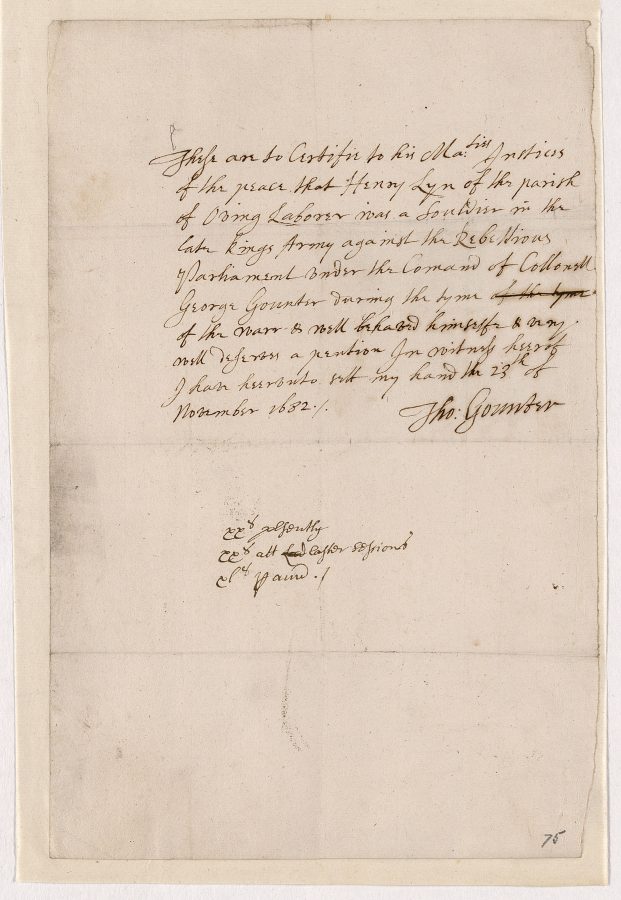 These are to Certifie to his Ma:ties Justices
of the peace that Henry Lyn of the parish
of Oving Laborer was a Souldier in the
late Kings Army against the Rebellious
Parliament Under the Comand of Collonell
George Gounter during the tyme of the tyme
of the warr & well behaved himselfe & very
well deserves a pention In witness heerof
I have heerunto sett my hand the 23th of
November 1682 /.
Tho: Gounter
xxs presently
xxs att easter sessions
xls paind ./
75